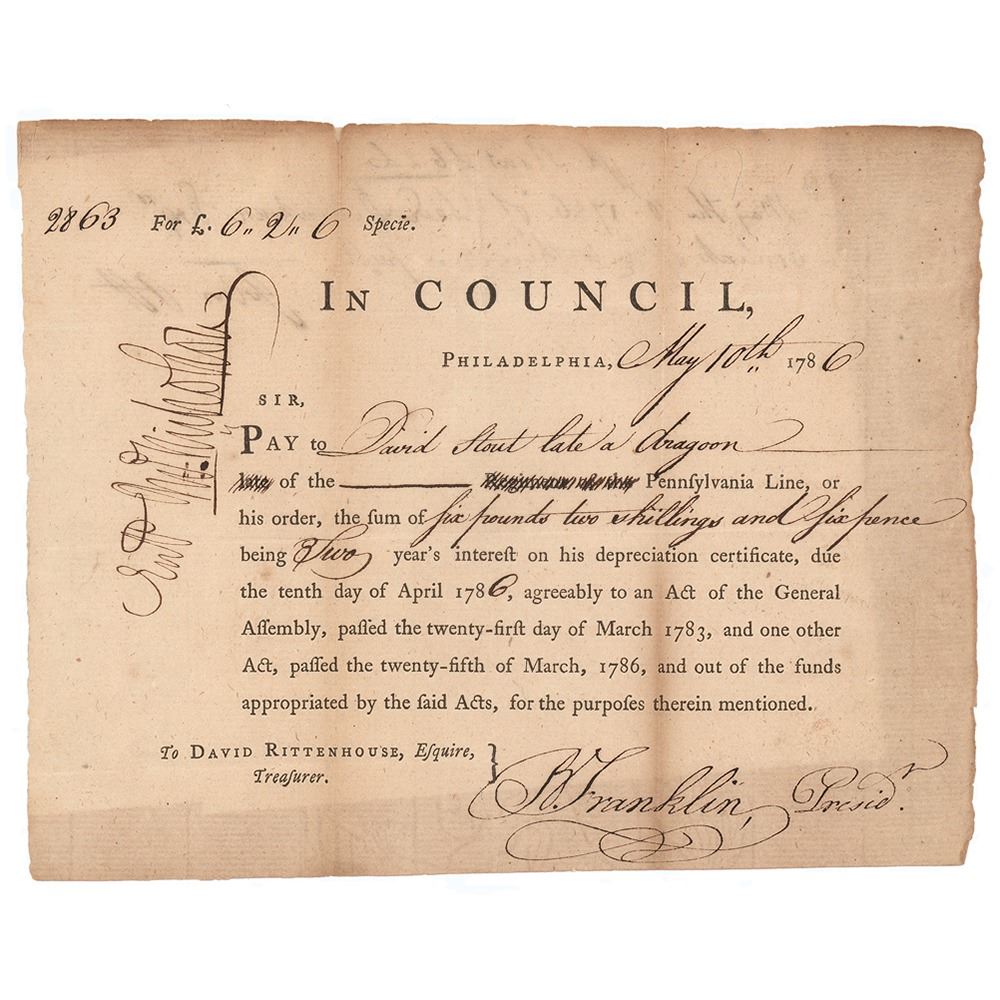 2863 For £. 6,, 2,, 6 Specie.
IN COUNCIL,
PHILADELPHIA, May 10th,, 1786
SIR,
PAY to David Stout late a dragoon
late of the Pennſylvania Line, or
his order, the ſum of ſix pounds two shillings and ſix pence
being Two year's intereſt on his depreciation certificate, due
the tenth day of April 1786, agreeably to an Act of the General
Aſſembly, paſſed the twenty-firſt day of March 1783, and one other
Act, paſſed the twenty-fifth of March, 1786, and out of the funds
appropriated by the ſaid Acts, for the purpoſes therein mentioned.
To DAVID RITTENHOUSE, Eſquire,
Treaſurer.
B. Franklin, Presidt.
Jn. Nicholson